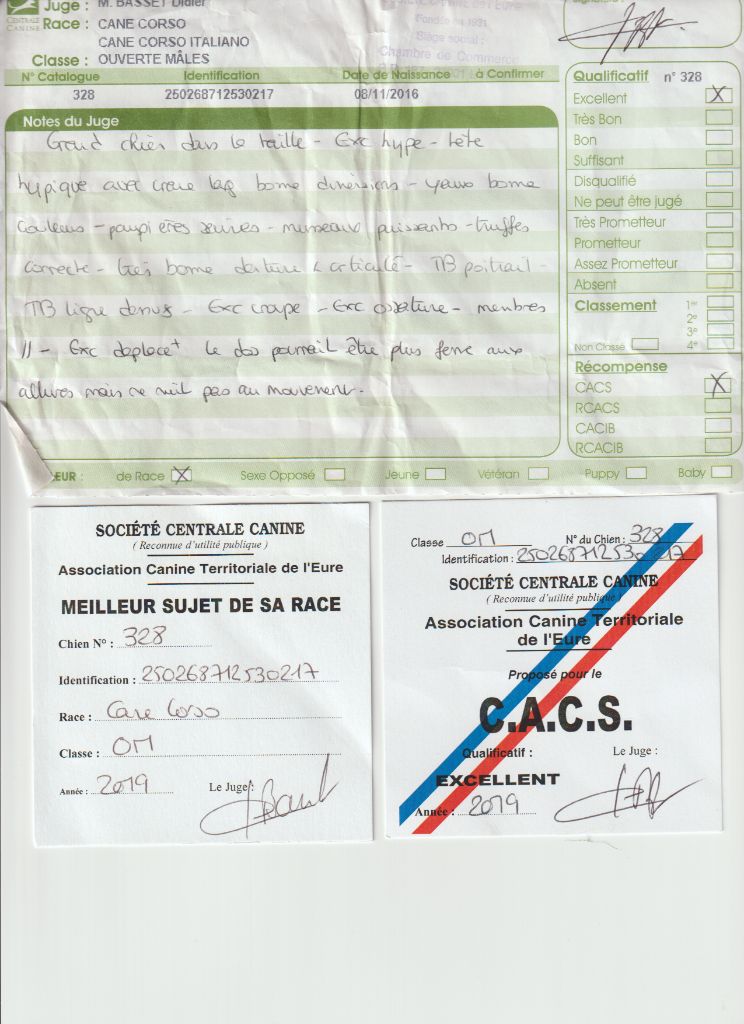 CENTRALE
CANINE
Juge : M. BASSET Didier
Race : CANE CORSO
CANE CORSO ITALIANO
Classe : OUVERTE MÂLES
Fondée en 1931
Siège social :
Chambre de Commerce
N° Catalogue Identification Date de Naissance à Confirmer
328 250268712530217 08/11/2016
Notes du Juge
Grand chien dans la taille - Exc type - tête
typique avec crane bonne dimensions - yeux bonne
couleurs - paupières - museaux puissants - truffes
correcte - très bonne denture articulé - TB poitrail -
TB ligne dessus - Exc croupe - Exc ossature - membres
// - Exc deplact le dos pourrait être plus ferme aux
allures mais ne nuit pas au mouvement.
Qualificatif n° 328
Excellent X
Très Bon
Bon
Suffisant
Disqualifié
Ne peut être jugé
Très Prometteur
Prometteur
Assez Prometteur
Absent
Classement 1er
2e
3e
Non Classé 4e
Récompense
CACS X
RCACS
CACIB
RCACIB
EUR : de Race X Sexe Opposé Jeune Vétéran Puppy Baby
SOCIÉTÉ CENTRALE CANINE
( Reconnue d'utilité publique )
Association Canine Territoriale de l'Eure
MEILLEUR SUJET DE SA RACE
Chien N° : 328
Identification : 250268712530217
Race : Cane Corso
Classe : OM
Année : 2019 Le Juge :
Classe OM N° du Chien : 328
Identification : 250268712530217
SOCIÉTÉ CENTRALE CANINE
( Reconnue d'utilité publique )
Association Canine Territoriale
de l'Eure
Proposé pour le
C.A.C.S.
Qualificatif : Le Juge :
EXCELLENT
Année : 2019